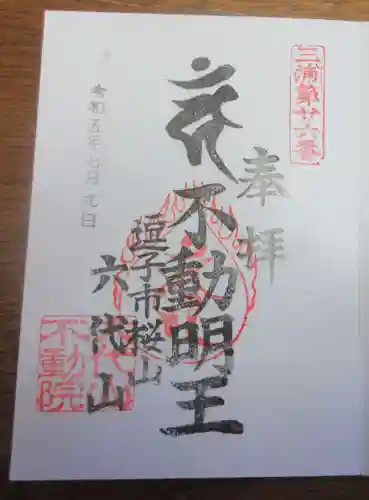 三浦第廿六番
奉拝
不動明王
逗子市桜山
六代山
不動院
令和五年七月九日